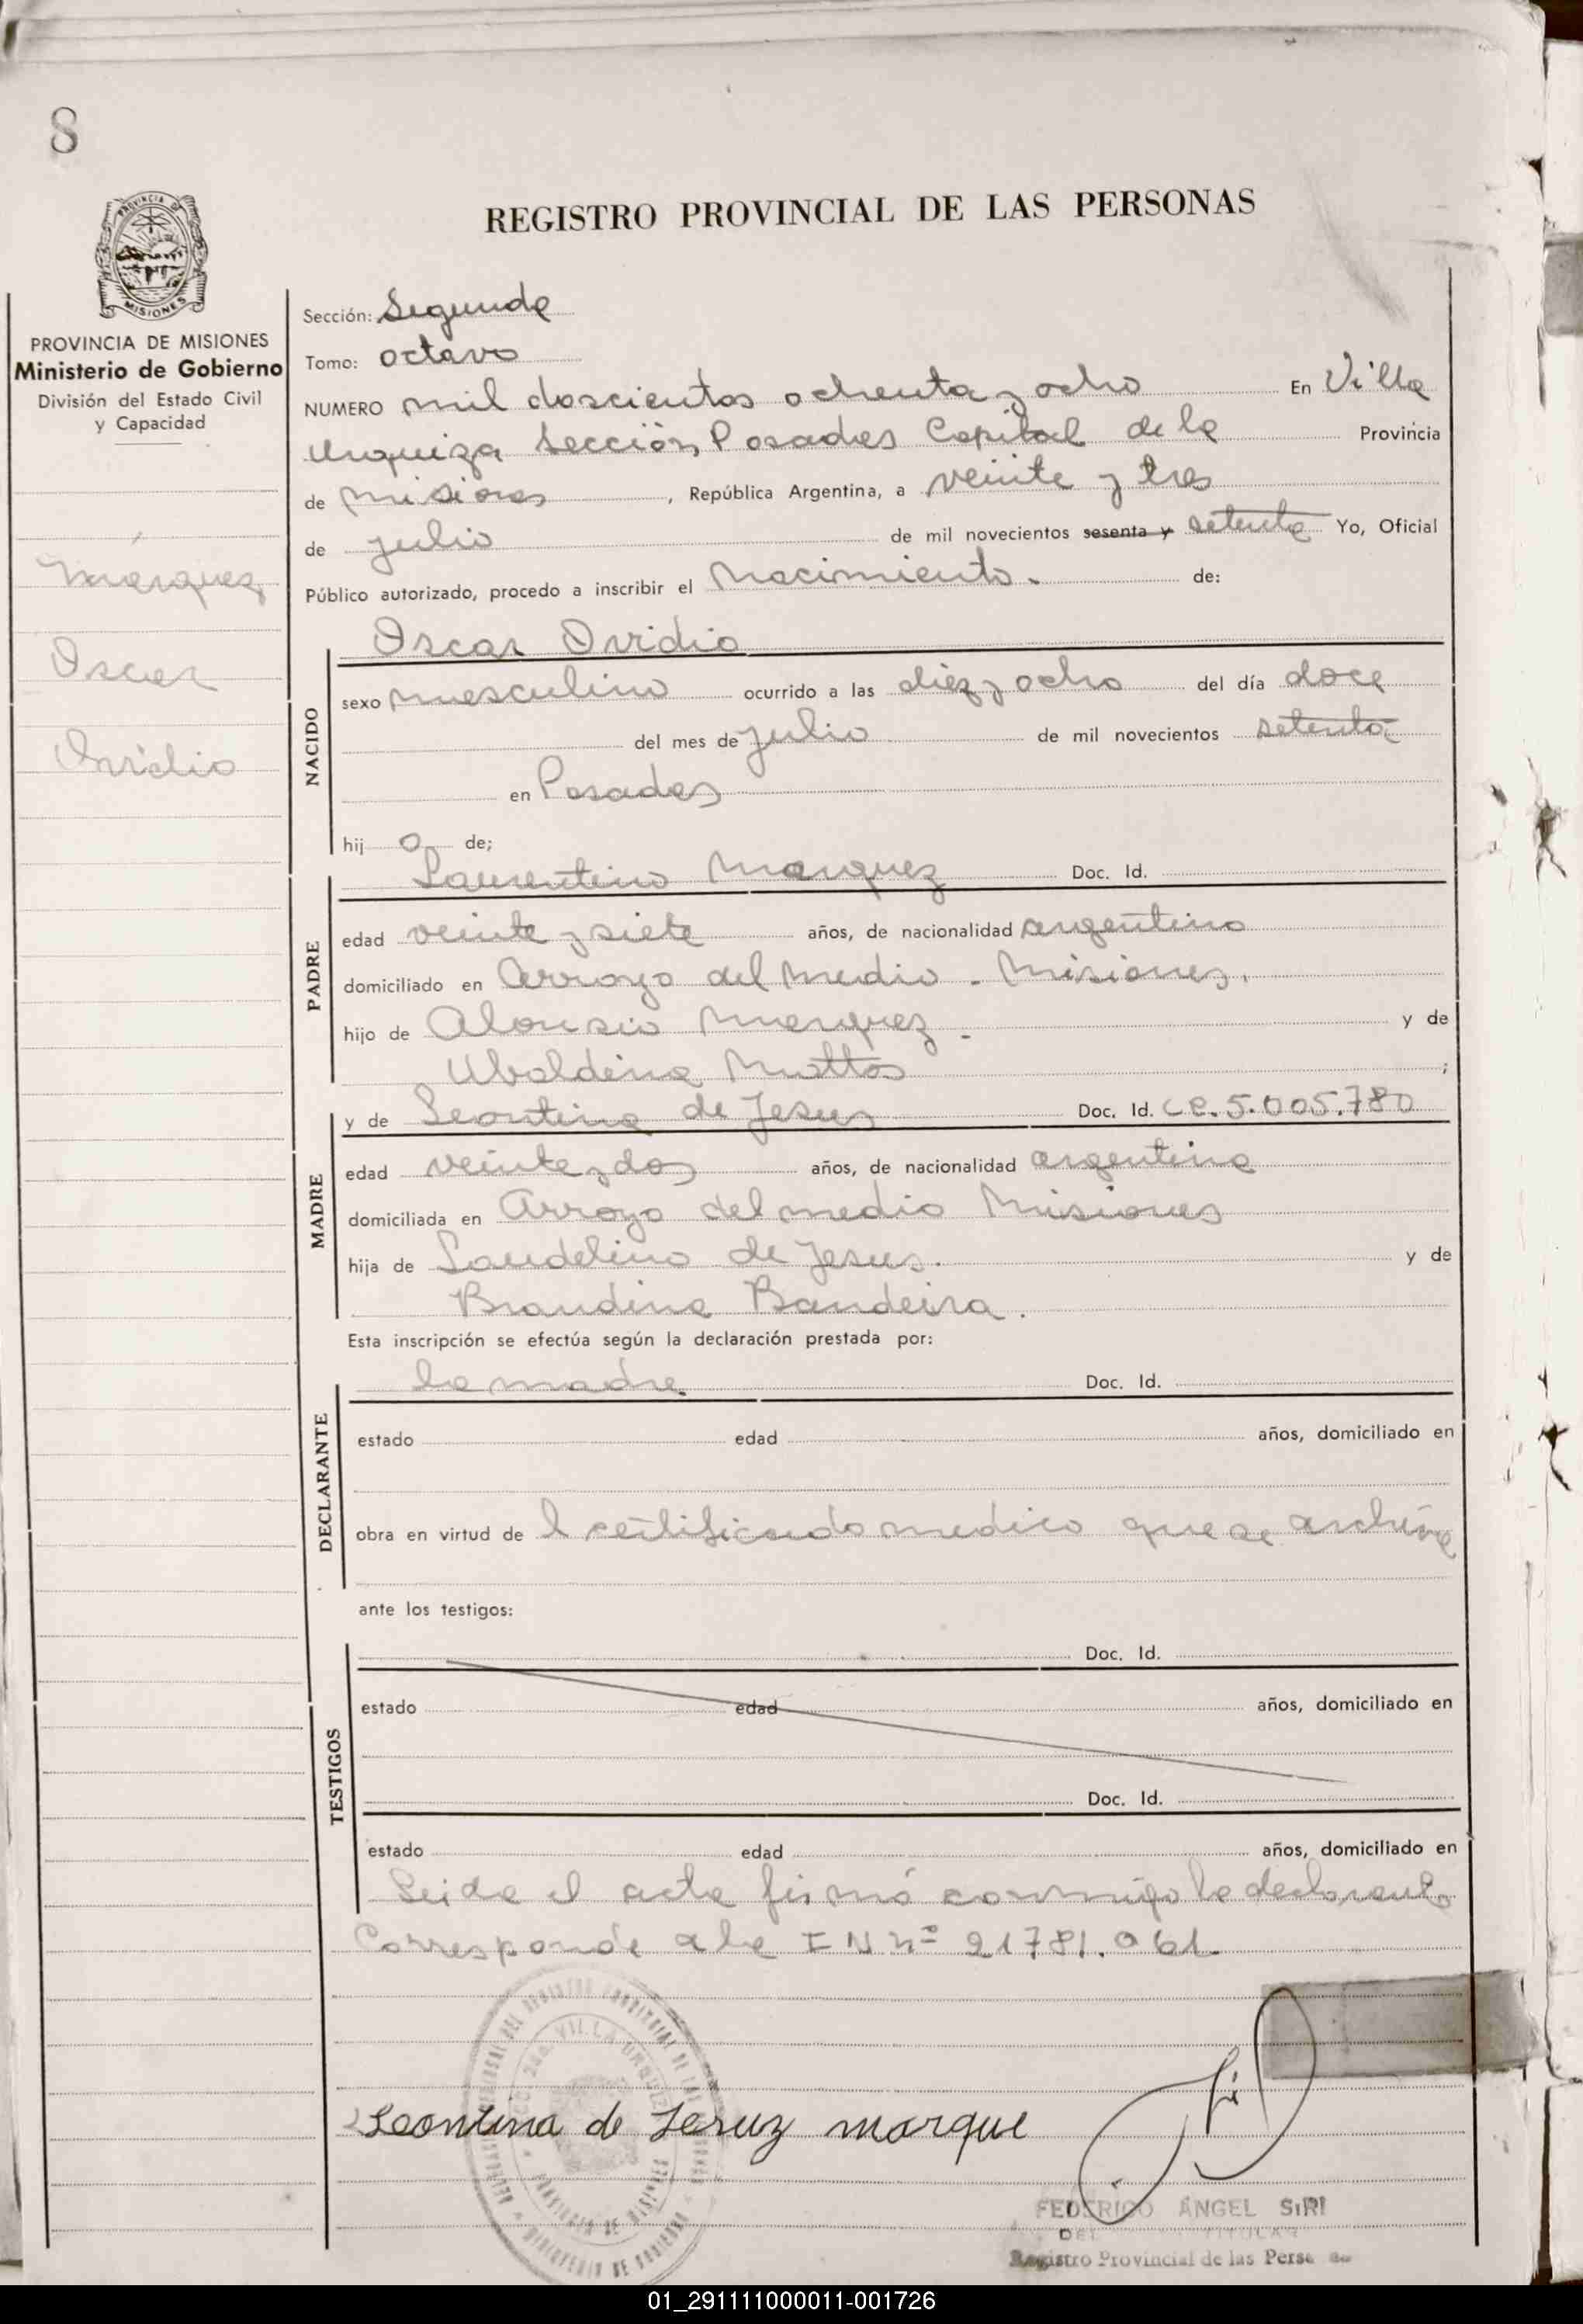 8
REGISTRO PROVINCIAL DE LAS PERSONAS
PROVINCIA DE MISIONES
Ministerio de Gobierno
División del Estado Civil
y Capacidad
Márquez
Oscar
Ovidio
Sección: Segunda
Tomo: octavo
NUMERO mil doscientos ochenta y ocho En Villa
Urquiza Sección, Posadas Capital de la Provincia
de Misiones, República Argentina, a veinte y tres
de julio de mil novecientos sesenta y setenta Yo, Oficial
Público autorizado, procedo a inscribir el Nacimiento. de:
NACIDO
Oscar Ovidio
sexo masculino ocurrido a las diez y ocho del día doce
del mes de julio de mil novecientos setenta
en Posadas
hij o de;
PADRE
Laurentino Marquez Doc. Id.
edad veinte y siete años, de nacionalidad argentino
domiciliado en Arroyo del Medio - Misiones.
hijo de Alonsio Marquez - y de
Ubaldina Mattos ;
MADRE
y de Leontina de Jesus Doc. Id. LC. 5.005.780
edad veinte y dos años, de nacionalidad argentina
domiciliada en Arroyo del medio Misiones
hija de Laudelino de Jesus. y de
Braudina Bandeira.
Esta inscripción se efectúa según la declaración prestada por:
DECLARANTE
la madre Doc. Id.
estado edad años, domiciliado en
obra en virtud de l certificado medico que se archiva
ante los testigos:
TESTIGOS
Doc. Id.
estado edad años, domiciliado en
Doc. Id.
estado edad años, domiciliado en
Leida el acta firmó conmigo la declarante
Corresponde a la I N nº 21781.061
Leontina de Jeruz marque
FEDERICO ÁNGEL SIRI
DEL TITULAR
Registro Provincial de las Perso
01_291111000011-001726